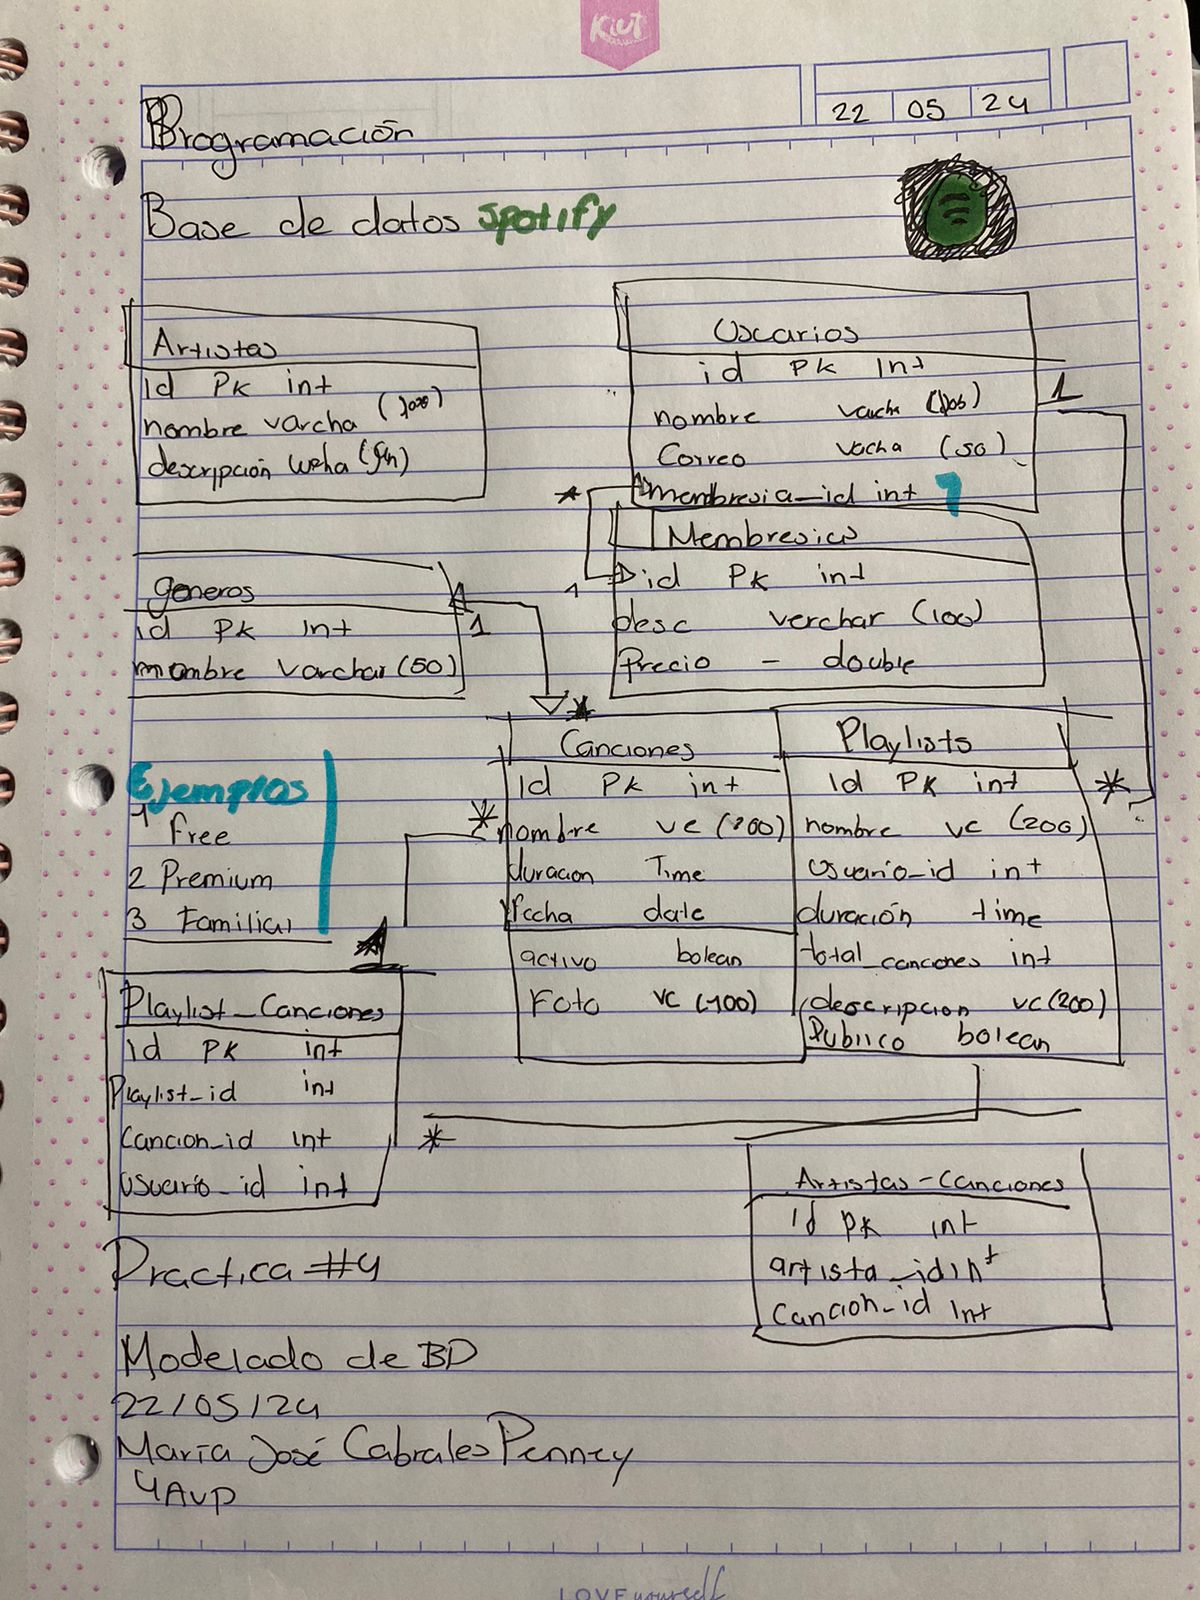 Kiut
22 05 24
Programación
Base de datos Spotify
Artistas
id PK int
nombre varcha
descripción
Uscarios
id PK Int
nombre varcha
Correo vacha (50)
membresia_id int
1
*
Membresias
1
id PK int
Desc verchar (100)
Precio - double
generos
1
id PK Int
nombre varchar (50)
*
Canciones
Id PK int
nombre vc (200)
duracion Time
fecha date
activo bolean
Foto vc (100)
*
Playlists
Id PK int
nombre vc (200)
Usuario_id int
duración time
total_canciones int
descripcion vc (200)
Publico bolean
*
Ejemplos
1 Free
2 Premium
3 Familial
Playlist_Canciones
id PK int
Playlist_id int
Cancion_id int
usuario_id int
*
Artistas-Canciones
id PK int
artista_id int
Cancion_id Int
Practica #4
Modelado de BD
22/05/24
María José Cabrales Penney
4AVP
LOVE yourself